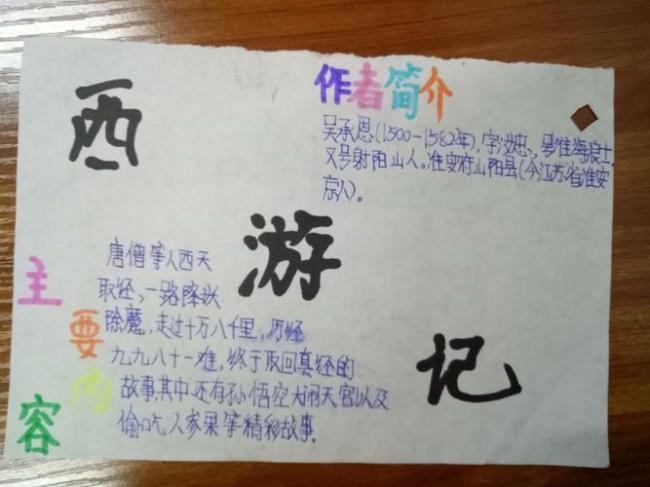 西
游
记
作者简介
吴承恩(1500-1582年),字汝忠、号淮海浪士,
又号射阳山人。淮安府山阳县(今江苏省淮安
京人)。
主要内容
唐僧等人西天
取经,一路降妖
除魔,走过十万八千里,历经
九九八十一难,终于取回真经的
故事其中还有孙悟空大闹天宫以及
偷吃人参果等精彩故事.